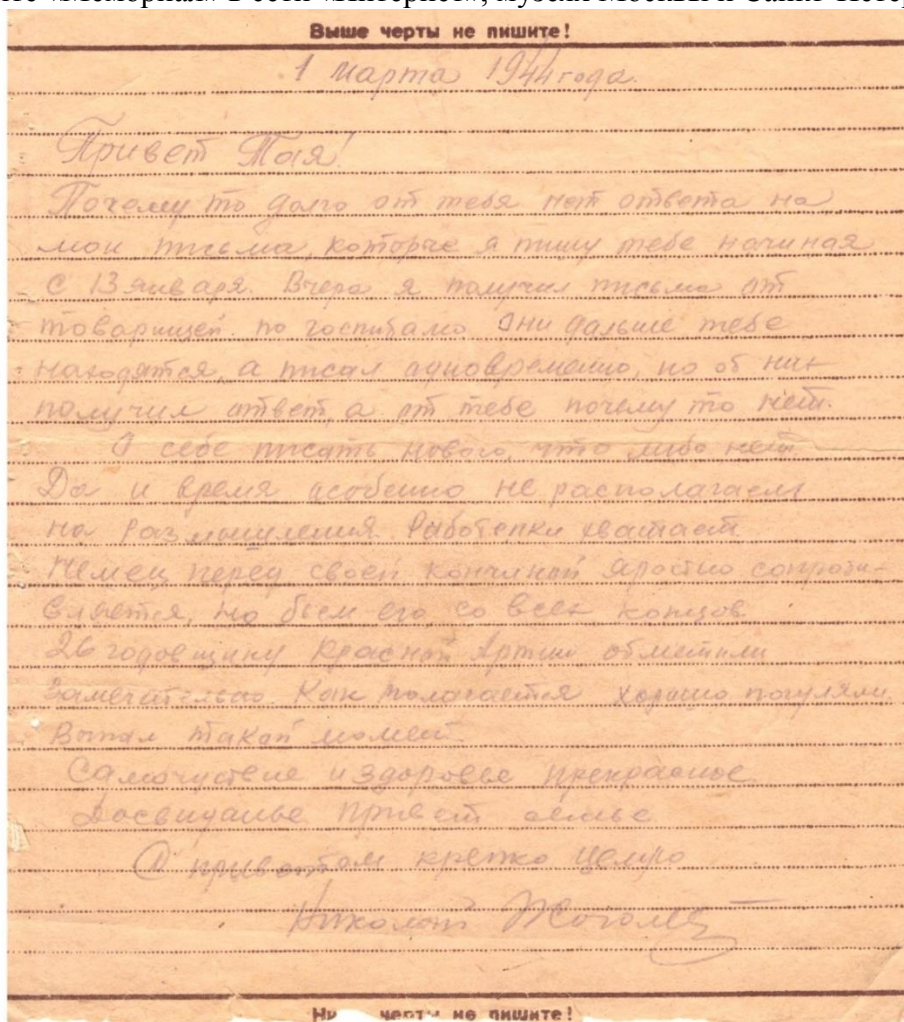 Выше черты не пишите!
1 марта 1944 года.
Привет Тая!
Почему то долго от тебя нет ответа на
мои письма, которые я пишу тебе начиная
с 13 января. Вчера я получил письмо от
товарищей по госпиталю они дальше тебе
находятся, а писал одновременно, но от них
получил ответ, а от тебе почему то нет.
О себе писать нового, что либо нет
Да и время особенно не располагаем
на размышления. Работенки хватает
Немец перед своей кончиной яростно сопроти-
вляется, но бьем его со всех концов
26 годовщину Красной Армии отметили
замечательно. Как полагается хорошо погуляли.
Выпал такой момент.
Самочуствие и здоровье прекрасное
Досвиданье привет семье
С приветом крепко целую
Николай
черты не пишите!